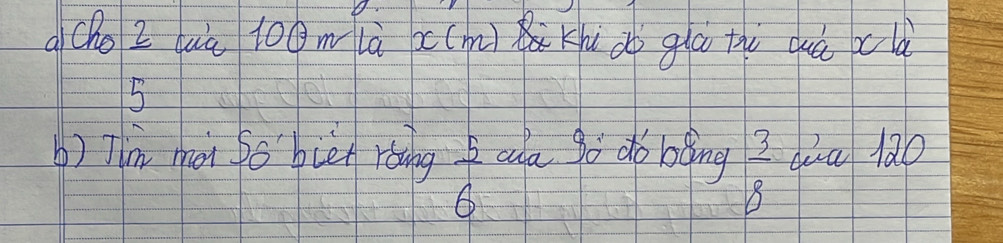 a) Cho 2/5 của 100 m là x (m) khi đó giá trị của x là
b) Tìm một số biết rằng 5/6 của số đó bằng 3/8 của 120